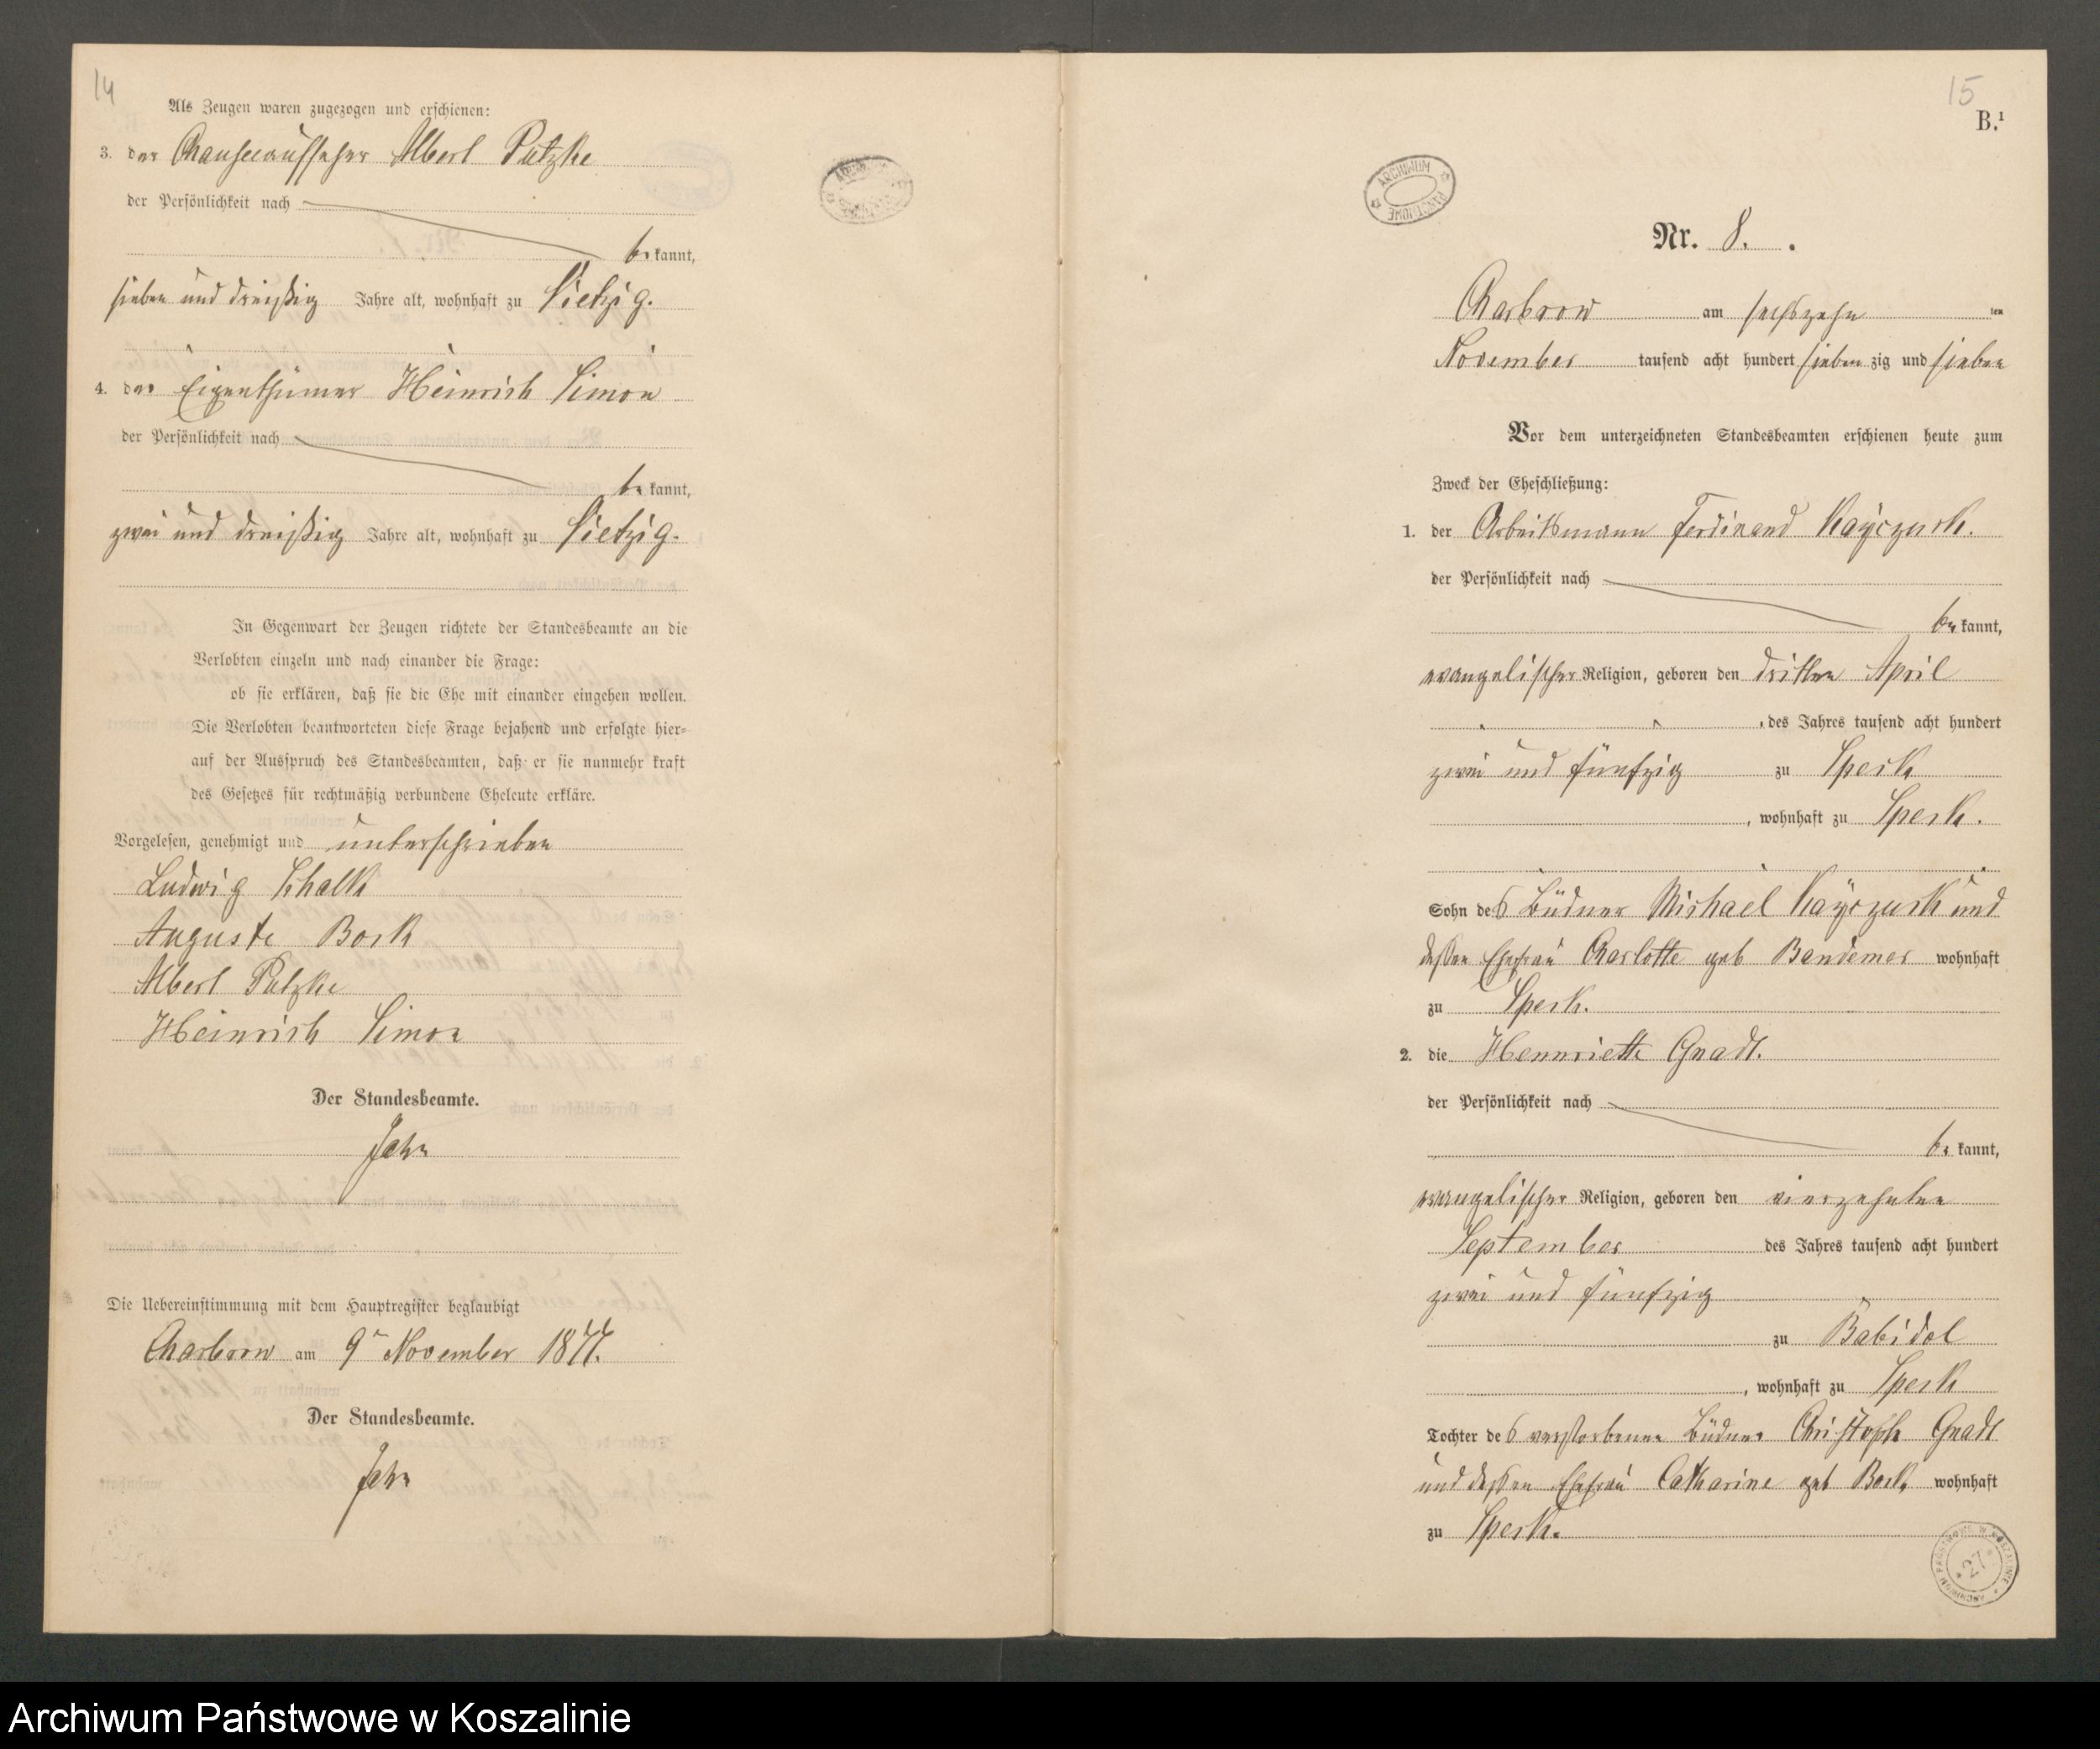 14
Als Zeugen waren zugezogen und erschienen:
3. der Chausseeaufseher Albert Putzke
der Persönlichkeit nach
bekannt,
sieben und dreißig Jahre alt, wohnhaft zu Vietzig.
4. der Eigenthümer Heinrich Simon
der Persönlichkeit nach
bekannt,
zwei und dreißig Jahre alt, wohnhaft zu Vietzig.
In Gegenwart der Zeugen richtete der Standesbeamte an die
Verlobten einzeln und nach einander die Frage:
ob sie erklären, daß sie die Ehe mit einander eingehen wollen.
Die Verlobten beantworteten diese Frage bejahend und erfolgte hier-
auf der Ausspruch des Standesbeamten, daß er sie nunmehr kraft
des Gesetzes für rechtmäßig verbundene Eheleute erkläre.
Vorgelesen, genehmigt und unterschrieben
Ludwig Schalk
Auguste Bock
Albert Putzke
Heinrich Simon
Der Standesbeamte.
Jahn
Die Uebereinstimmung mit dem Hauptregister beglaubigt
Charbrow am 9ten November 1877.
Der Standesbeamte.
Jahn
15
B.¹
ARCHIWUM PAŃSTWOWE
Nr. 8.
Charbrow am sechszehnten
November tausend acht hundert siebenzig und sieben
Vor dem unterzeichneten Standesbeamten erschienen heute zum
Zweck der Eheschließung:
1. der Arbeitsmann Ferdinand Kayczuck.
der Persönlichkeit nach
bekannt,
evangelischer Religion, geboren den dritten April
des Jahres tausend acht hundert
zwei und fünfzig zu Speck
, wohnhaft zu Speck.
Sohn des Büdner Michael Kayczuck und
dessen Ehefrau Charlotte geb Bandemer wohnhaft
zu Speck.
2. die Hennriette Gnadt.
der Persönlichkeit nach
bekannt,
evangelischer Religion, geboren den vierzehnten
September des Jahres tausend acht hundert
zwei und fünfzig
zu Babidol
, wohnhaft zu Speck
Tochter des verstorbenen Büdner Christoph Gnadt
und dessen Ehefrau Catharine geb Bock, wohnhaft
zu Speck.
ARCHIWUM PAŃSTWOWE W KOSZALINIE
27
Archiwum Państwowe w Koszalinie